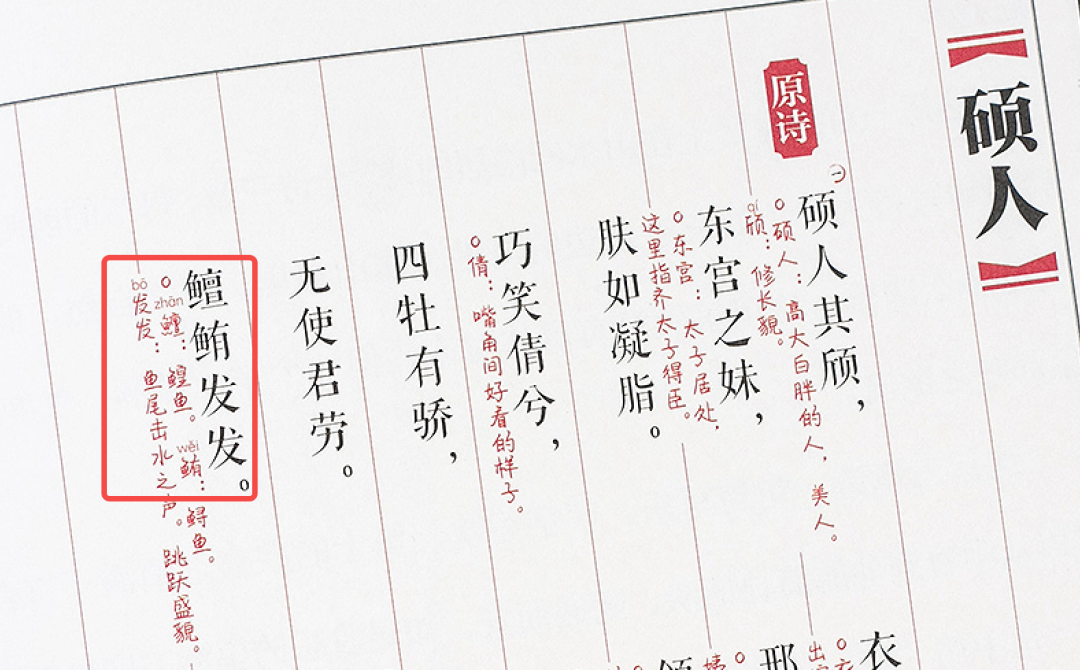 硕人
原诗
㊀
硕人其颀，
○硕人：高大白胖的人，美人。
qí
颀：修长貌。
东宫之妹，
○东宫：太子居处，
这里指齐太子得臣。
肤如凝脂。
巧笑倩兮，
○倩：嘴角间好看的样子。
四牡有骄，
无使君劳。
鳣鲔发发。
zhān wěi
○鳣：鳇鱼。鲔：鲟鱼。
bō
发发：鱼尾击水之声。跳跃盛貌。
衣
邢